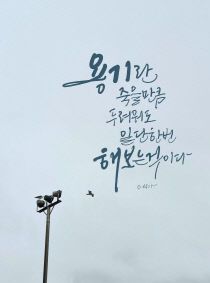 용기란
죽을만큼
두려워도
일단 한번
해보는것이다